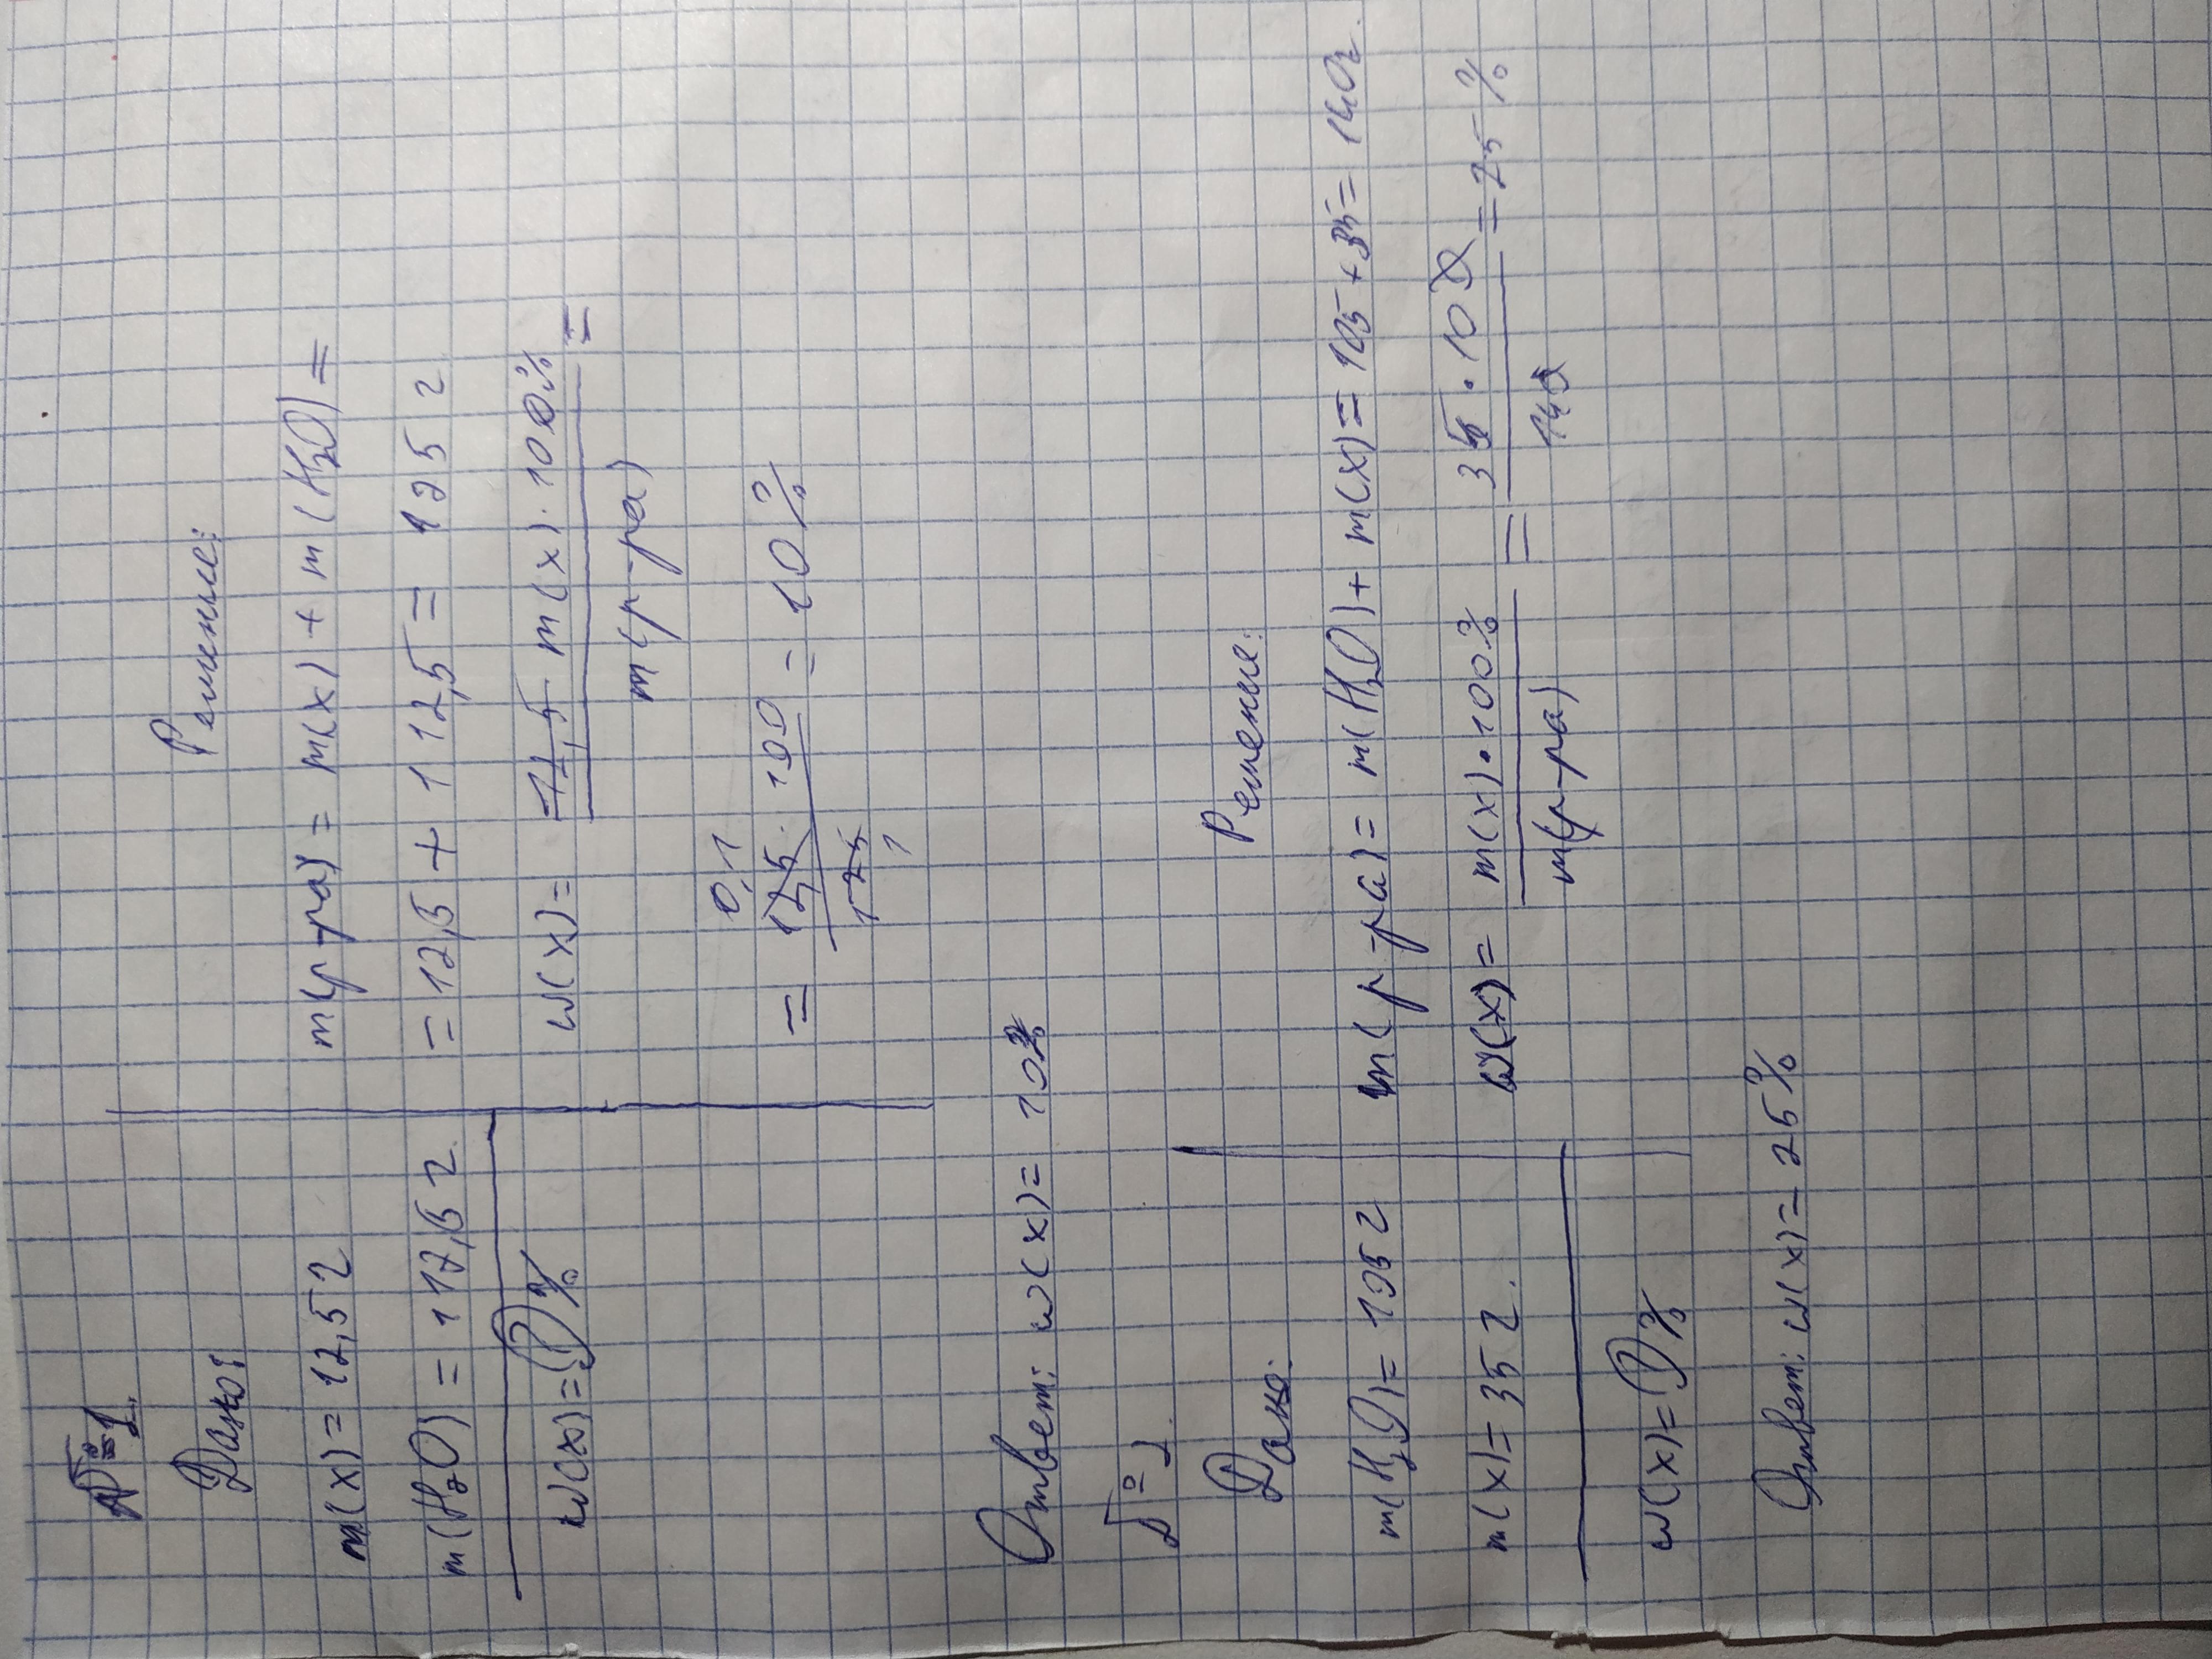 №1.
Дано:
m(x) = 12,5 г
m(H2O) = 117,5 г
w(x) = ? %
Решение:
m(р-ра) = m(x) + m(H2O) =
= 12,5 + 112,5 = 125 г
w(x) = m(x) · 100% =
m(р-ра)
0,1
= 12,5 · 100 = 10%
125
1
Ответ: w(x) = 10%
№2.
Дано:
m(H2O) = 105 г
m(x) = 35 г.
w(x) = ? %
Решение:
m(р-ра) = m(H2O) + m(x) = 105 + 35 = 140г.
w(x) = m(x) · 100% = 35 · 100 = 25%
m(р-ра) 140
Ответ: w(x) = 25%